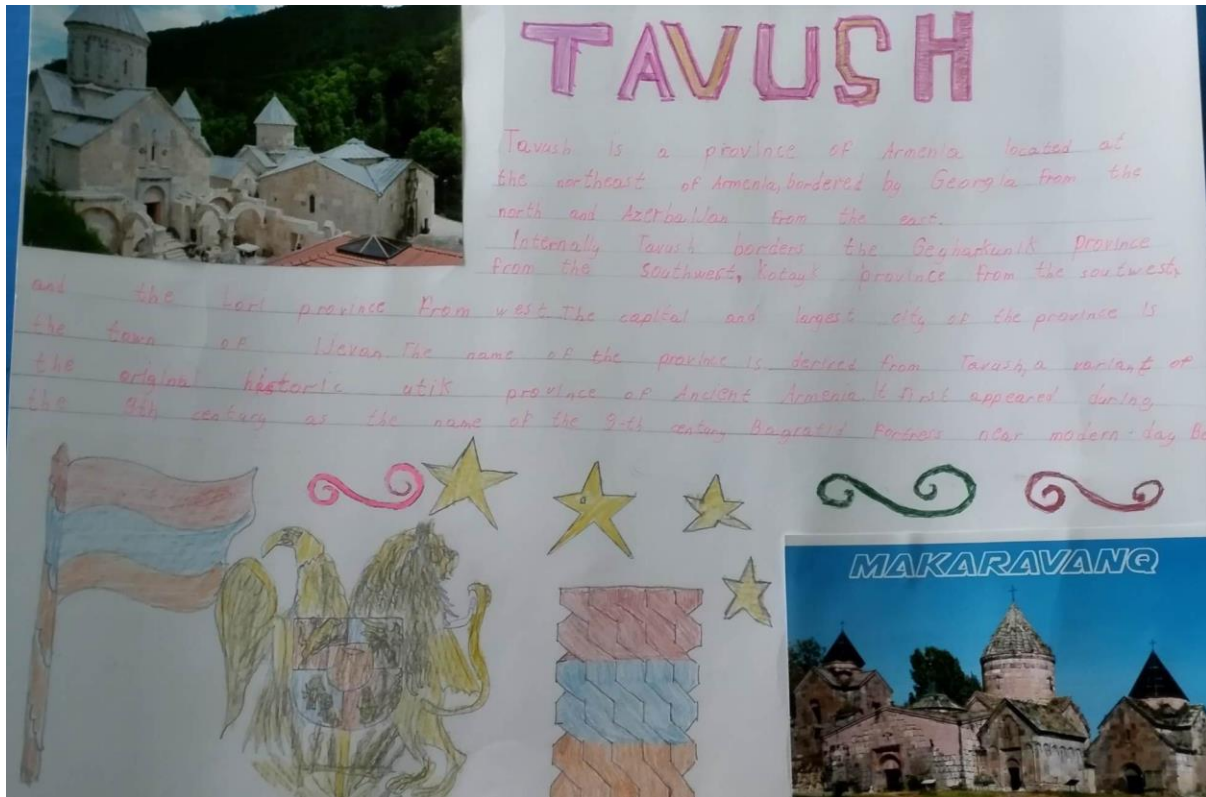 TAVUSH
Tavush is a province of Armenia located at
the northeast of Armenia, bordered by Georgia from the
north and Azerbaijan from the east.
Internally Tavush borders the Gegharkunik Province
from the southwest, Kotayk province from the soutwest,
and the Lori province from west. The capital and largest city of the province is
the town of Ijevan. The name of the province is derived from Tavush, a variant of
the original historic utik province of Ancient Armenia. It first appeared during
the 9th century as the name of the 9-th century Bagratid Fortness near modern-day Be
MAKARAVANQ